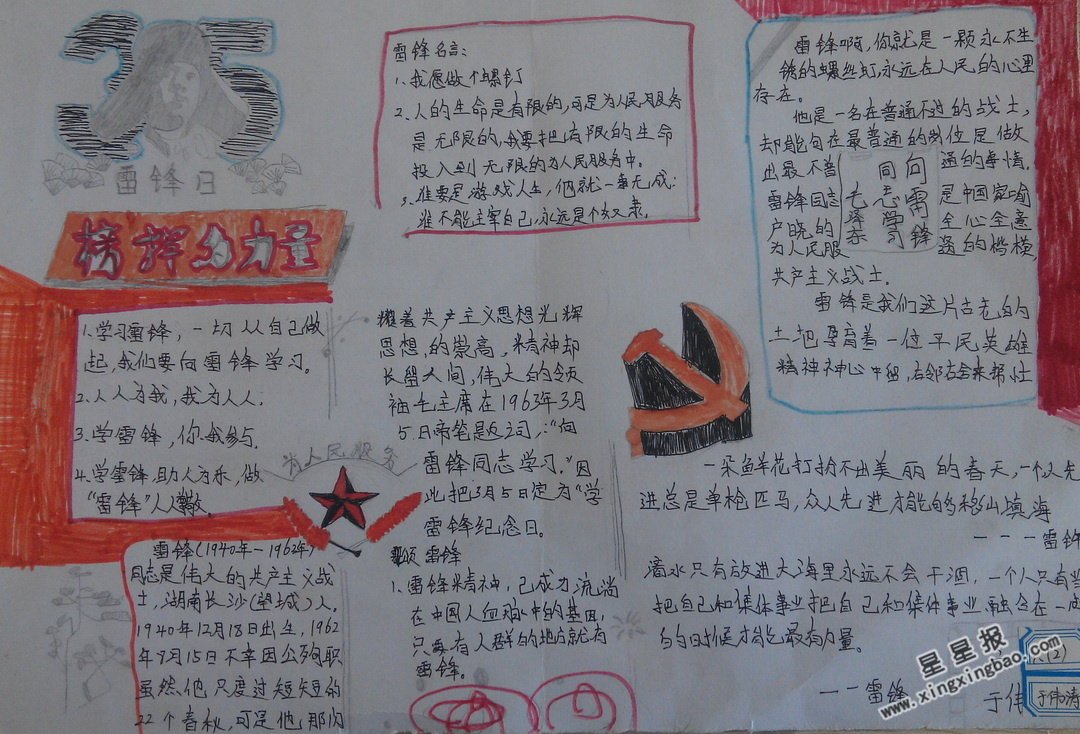 35
雷锋日
榜样的力量
1.学习雷锋，一切从自己做
起，我们要向雷锋学习。
2.人人为我，我为人人.
3.学雷锋，你我参与.
4.学雷锋,助人为乐，做
“雷锋”人人敬。
雷锋(1940年－1962年)
同志是伟大的共产主义战
士，湖南长沙(望城)人.
1940年12月18日出生，1962
年8月15日不幸因公殉职
虽然他只度过短短的
22个春秋，可是他那闪
雷锋名言：
1.我愿做个螺钉
2.人的生命是有限的,可是为人民服务
是无限的，我要把有限的生命
投入到无限的为人民服务中。
3.谁要是游戏人生，他就一事无成；
谁不能主宰自己，永远是个奴隶。
耀着共产主义思想光辉
思想的崇高，精神却
长留人间，伟大的领
袖毛主席在1963年3月
5日
“向
雷锋同志学习。”因
此把3月5日定为“学
雷锋纪念日。
为人民服务
颂雷锋
1.雷锋精神，已成为流淌
在中国人血脉中的基因，
只要有人群的地方就有
雷锋。
雷锋啊，你就是一颗永不生
锈的螺丝钉,永远在人民的心里
存在。
他是一名在普通不过的战士，
却能勾在最普通的岗位是做
出最不普 通的事情.
雷锋同志 是中国家喻
户晓的 全心全意
为人民服 的楷模,
共产主义战士.
向雷锋
同志学习
毛泽东
雷锋是我们这片古老的
土地孕育着一位平民英雄
精神中
一朵鲜花打扮不出美丽的春天，一个人先
进总是单枪匹马，众人先进才能够移山填海
－－－雷锋
滴水只有放进大海里永远不会干涸，一个人只有当
把自己和集体事业把自己和集体事业融合在一起
的时候才能最有力量。
－－雷锋
于伟
(2)
于伟涛
星星报
www.xingxingbao.com